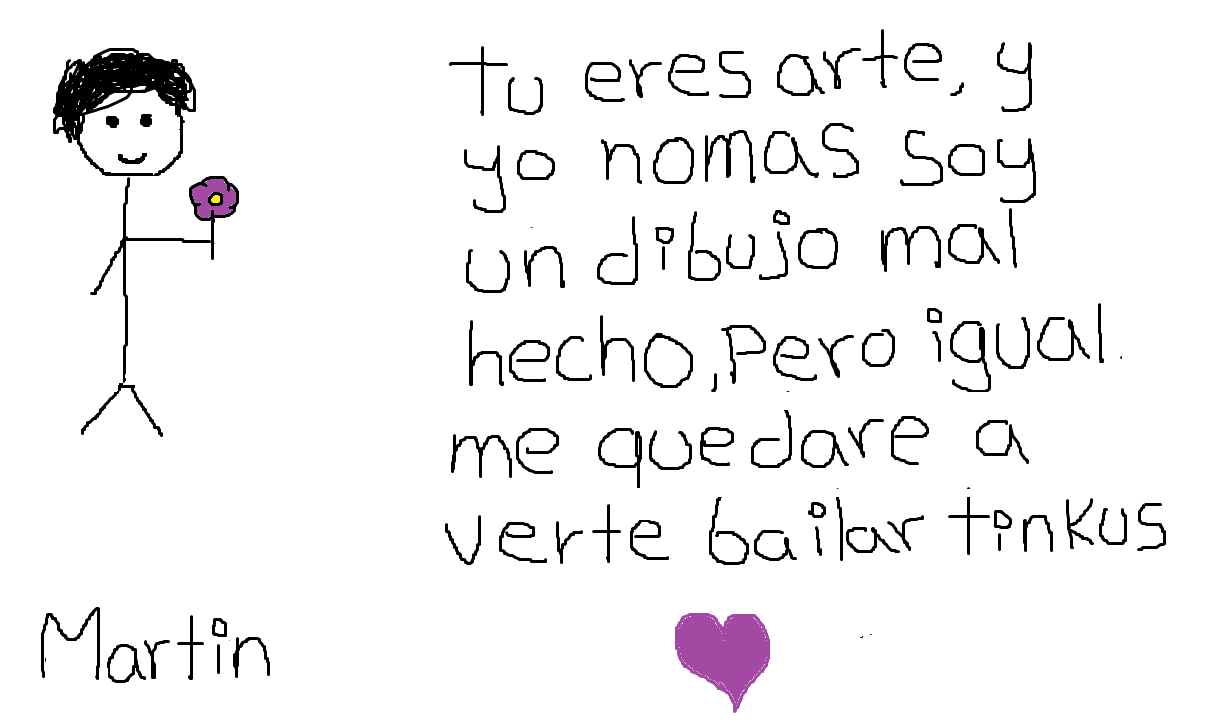 Tu eres arte, y
yo nomas soy
un dibujo mal
hecho, Pero igual
me quedare a
verte bailar tinkus
Martin